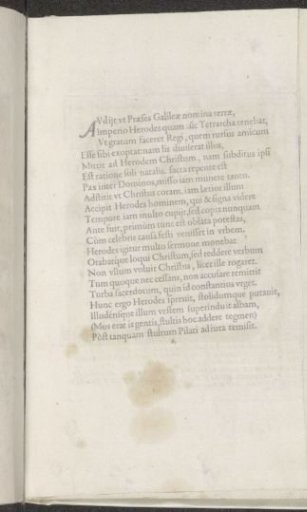 AVdijt vt Præses Galileæ nomina terræ,
Imperio Herodes quam sic Tetrarcha tenebat,
Vt gratum faceret Regi, quem rursus amicum
Esse sibi exoptat: nam lis diuiserat illos,
Mittit ad Herodem Christum, nam subditus ipsi
Est ratione soli natalis. facta repente est
Pax inter Dominos, misso iam munere tanto.
Adstitit vt Christus coram, iam lætior illum
Accipit Herodes hominem, qui & signa videre
Tempore iam multo cupijt, sed copia nunquam
Ante fuit, primum tunc est oblata potestas,
Cùm celebris causâ festi venisset in vrbem.
Herodes igitur multo sermone monebat
Orabatque loqui Christum, sed reddere verbum
Non vllum voluit Christus, licet ille rogaret.
Tum quoque nec cessans, non accusare remittit
Turba sacerdotum, quin id constantius vrget.
Hunc ergo Herodes spernit, stolidumque putauit,
Illudensque illum vestem superinduit albam,
(Mos erat is gentis, stultis hoc addere tegmen)
Pòst tanquam stultum Pilati ad iura remisit.